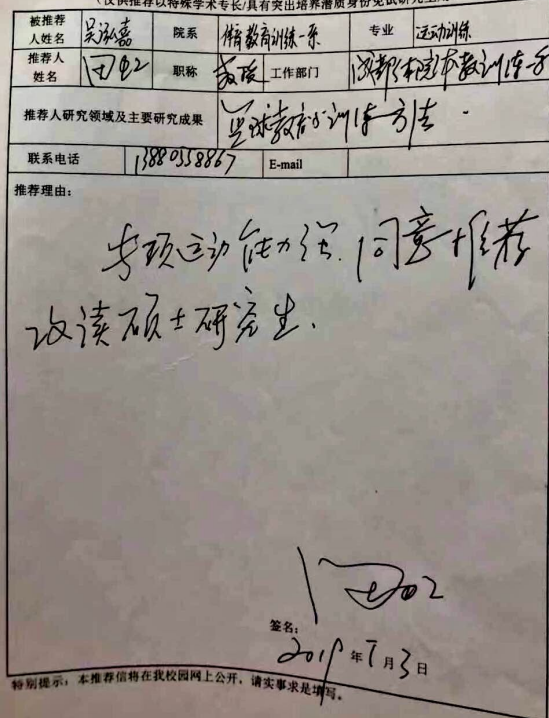 (仅供推荐以特殊学术专长/具有突出培养潜质身份免试研究生
被推荐人姓名 吴泓嘉 院系 体育教育训练一系 专业 运动训练
推荐人姓名 职称 教授 工作部门 成都体院体教训练一系
推荐人研究领域及主要研究成果 篮球教育训练方法.
联系电话 13880558867 E-mail
推荐理由:
专项运动能力强. 同意推荐
攻读硕士研究生.
签名:
2019年 月3日
特别提示: 本推荐信将在我校园网上公开, 请实事求是填写。